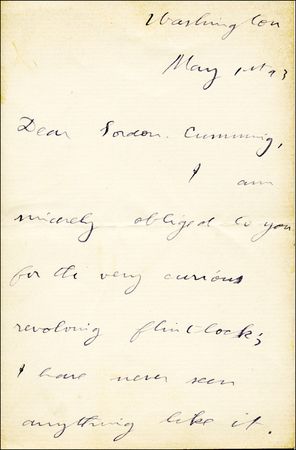 Washington
May 1st 93
Dear Gordon-Cumming,
I am
sincerely obliged to you
for the very curious
revolving flint-lock;
I have never seen
anything like it.